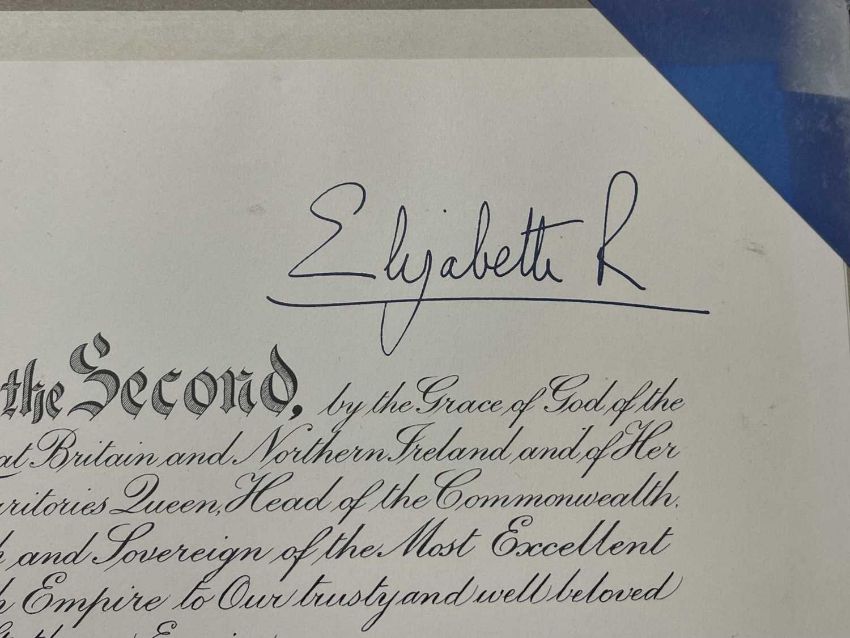 Elizabeth R
the Second, by the Grace of God, of the
Britain and Northern Ireland and of Her
Queen, Head of the Commonwealth,
and Sovereign of the Most Excellent
Empire to Our trusty and well beloved